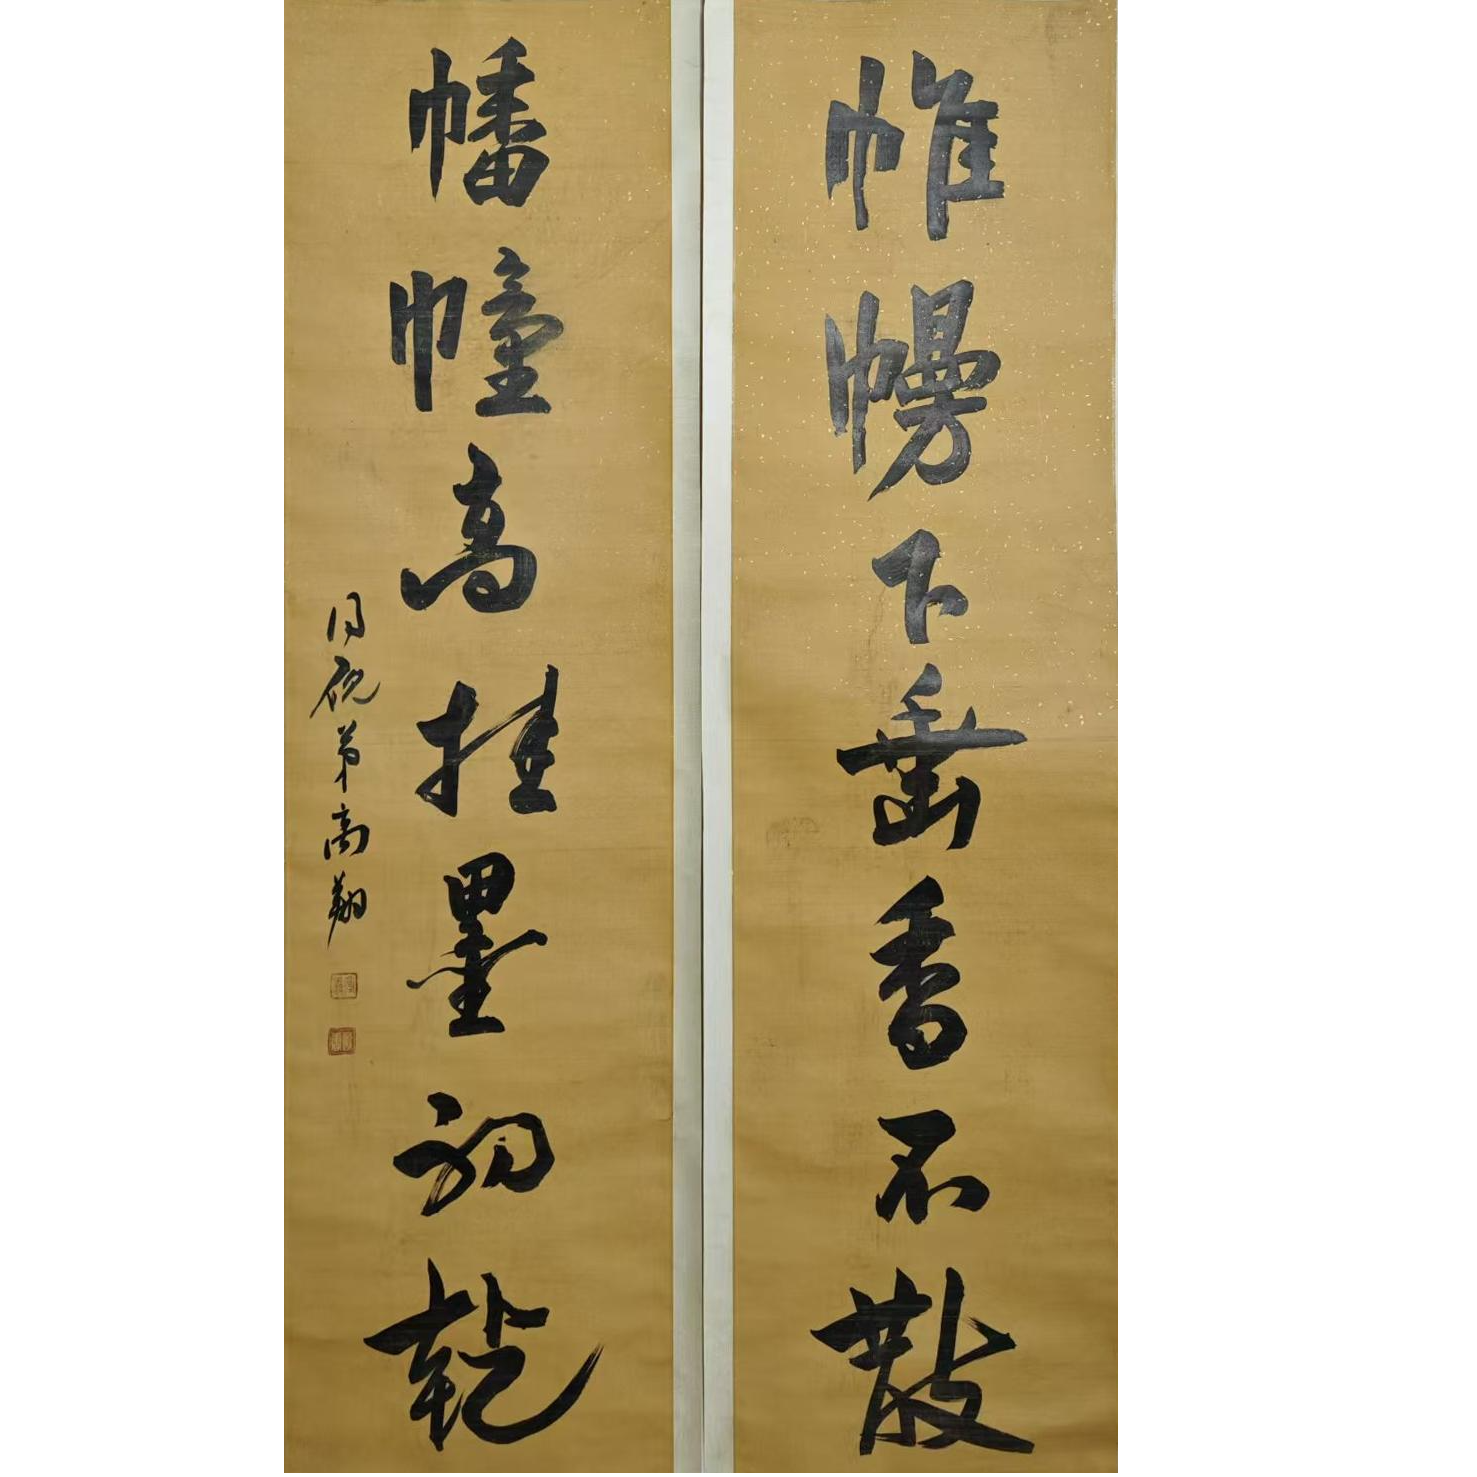 帷幔下垂香不散
幡幢高挂墨初乾
同硯弟高翔